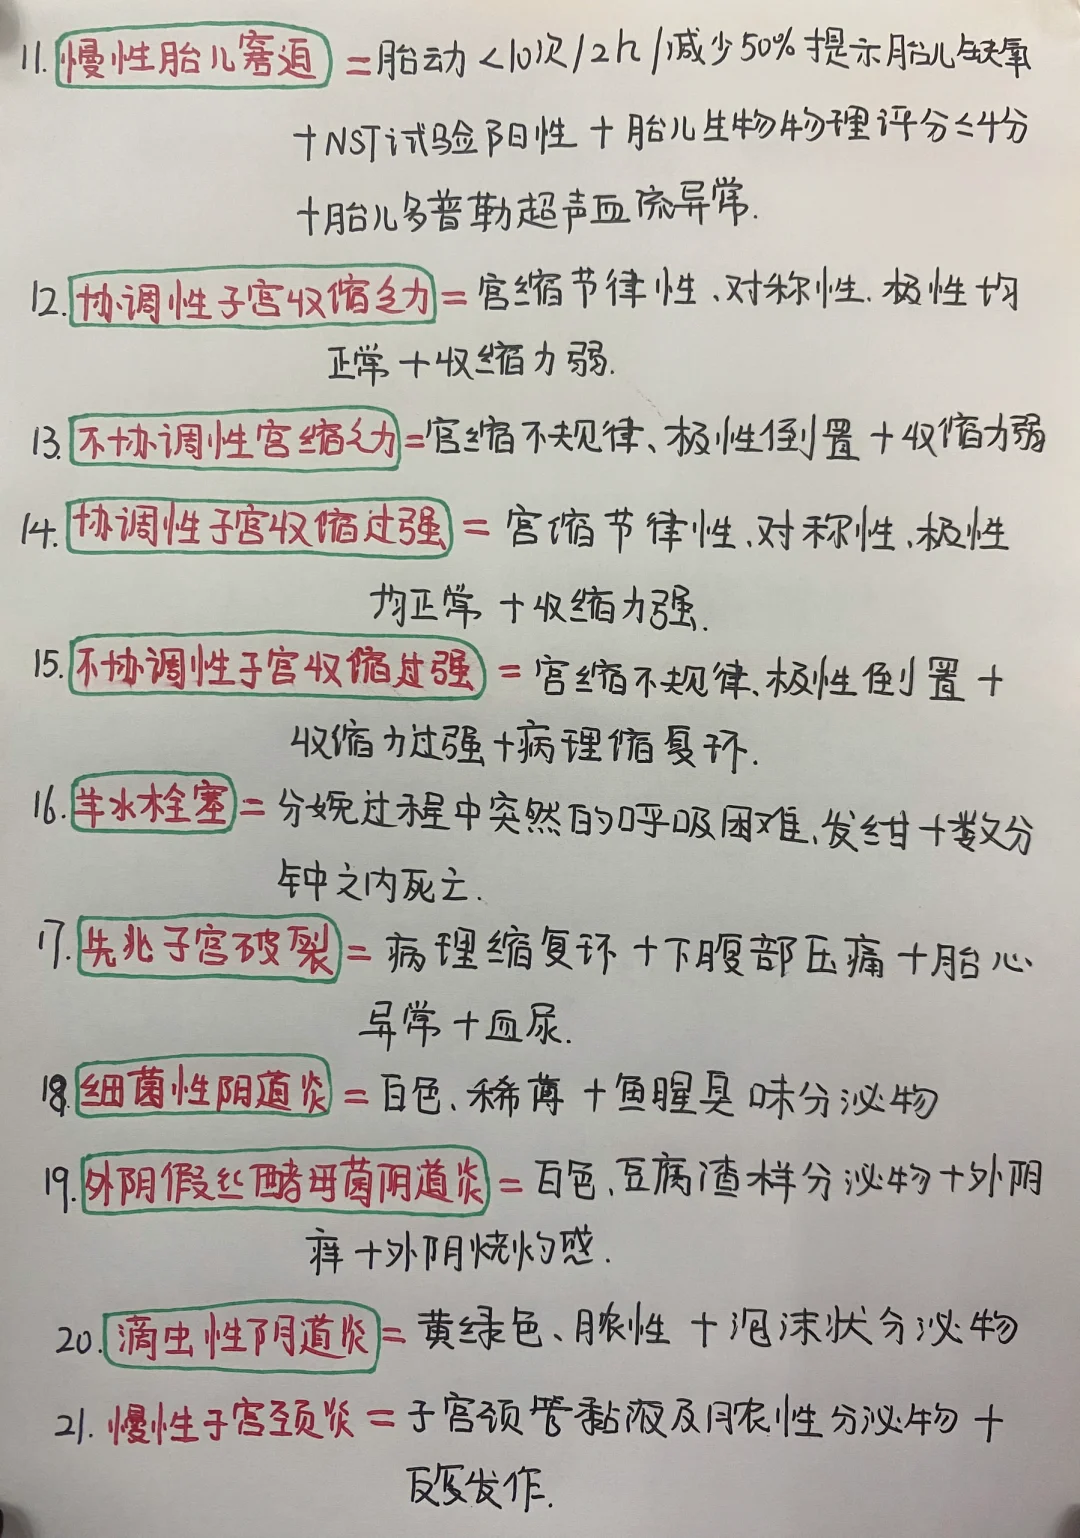 11. 慢性胎儿窘迫 = 胎动<10次/2h/减少50%提示胎儿缺氧
+NST试验阳性+胎儿生物物理评分≤4分
+胎儿多普勒超声血流异常.
12. 协调性子宫收缩乏力 = 宫缩节律性、对称性、极性均
正常+收缩力弱.
13. 不协调性宫缩乏力=宫缩不规律、极性倒置+收缩力弱
14. 协调性子宫收缩过强 = 宫缩节律性、对称性、极性
均正常+收缩力强.
15. 不协调性子宫收缩过强 = 宫缩不规律、极性倒置+
收缩力过强+病理缩复环.
16. 羊水栓塞 = 分娩过程中突然的呼吸困难、发绀+数分
钟之内死亡.
17. 先兆子宫破裂 = 病理缩复环+下腹部压痛+胎心
异常+血尿.
18. 细菌性阴道炎 = 白色、稀薄+鱼腥臭味分泌物
19. 外阴假丝酵母菌阴道炎 = 白色、豆腐渣样分泌物+外阴
痒+外阴烧灼感.
20. 滴虫性阴道炎 = 黄绿色、脓性+泡沫状分泌物
21. 慢性子宫颈炎 = 子宫颈管黏液及脓性分泌物+
反复发作.